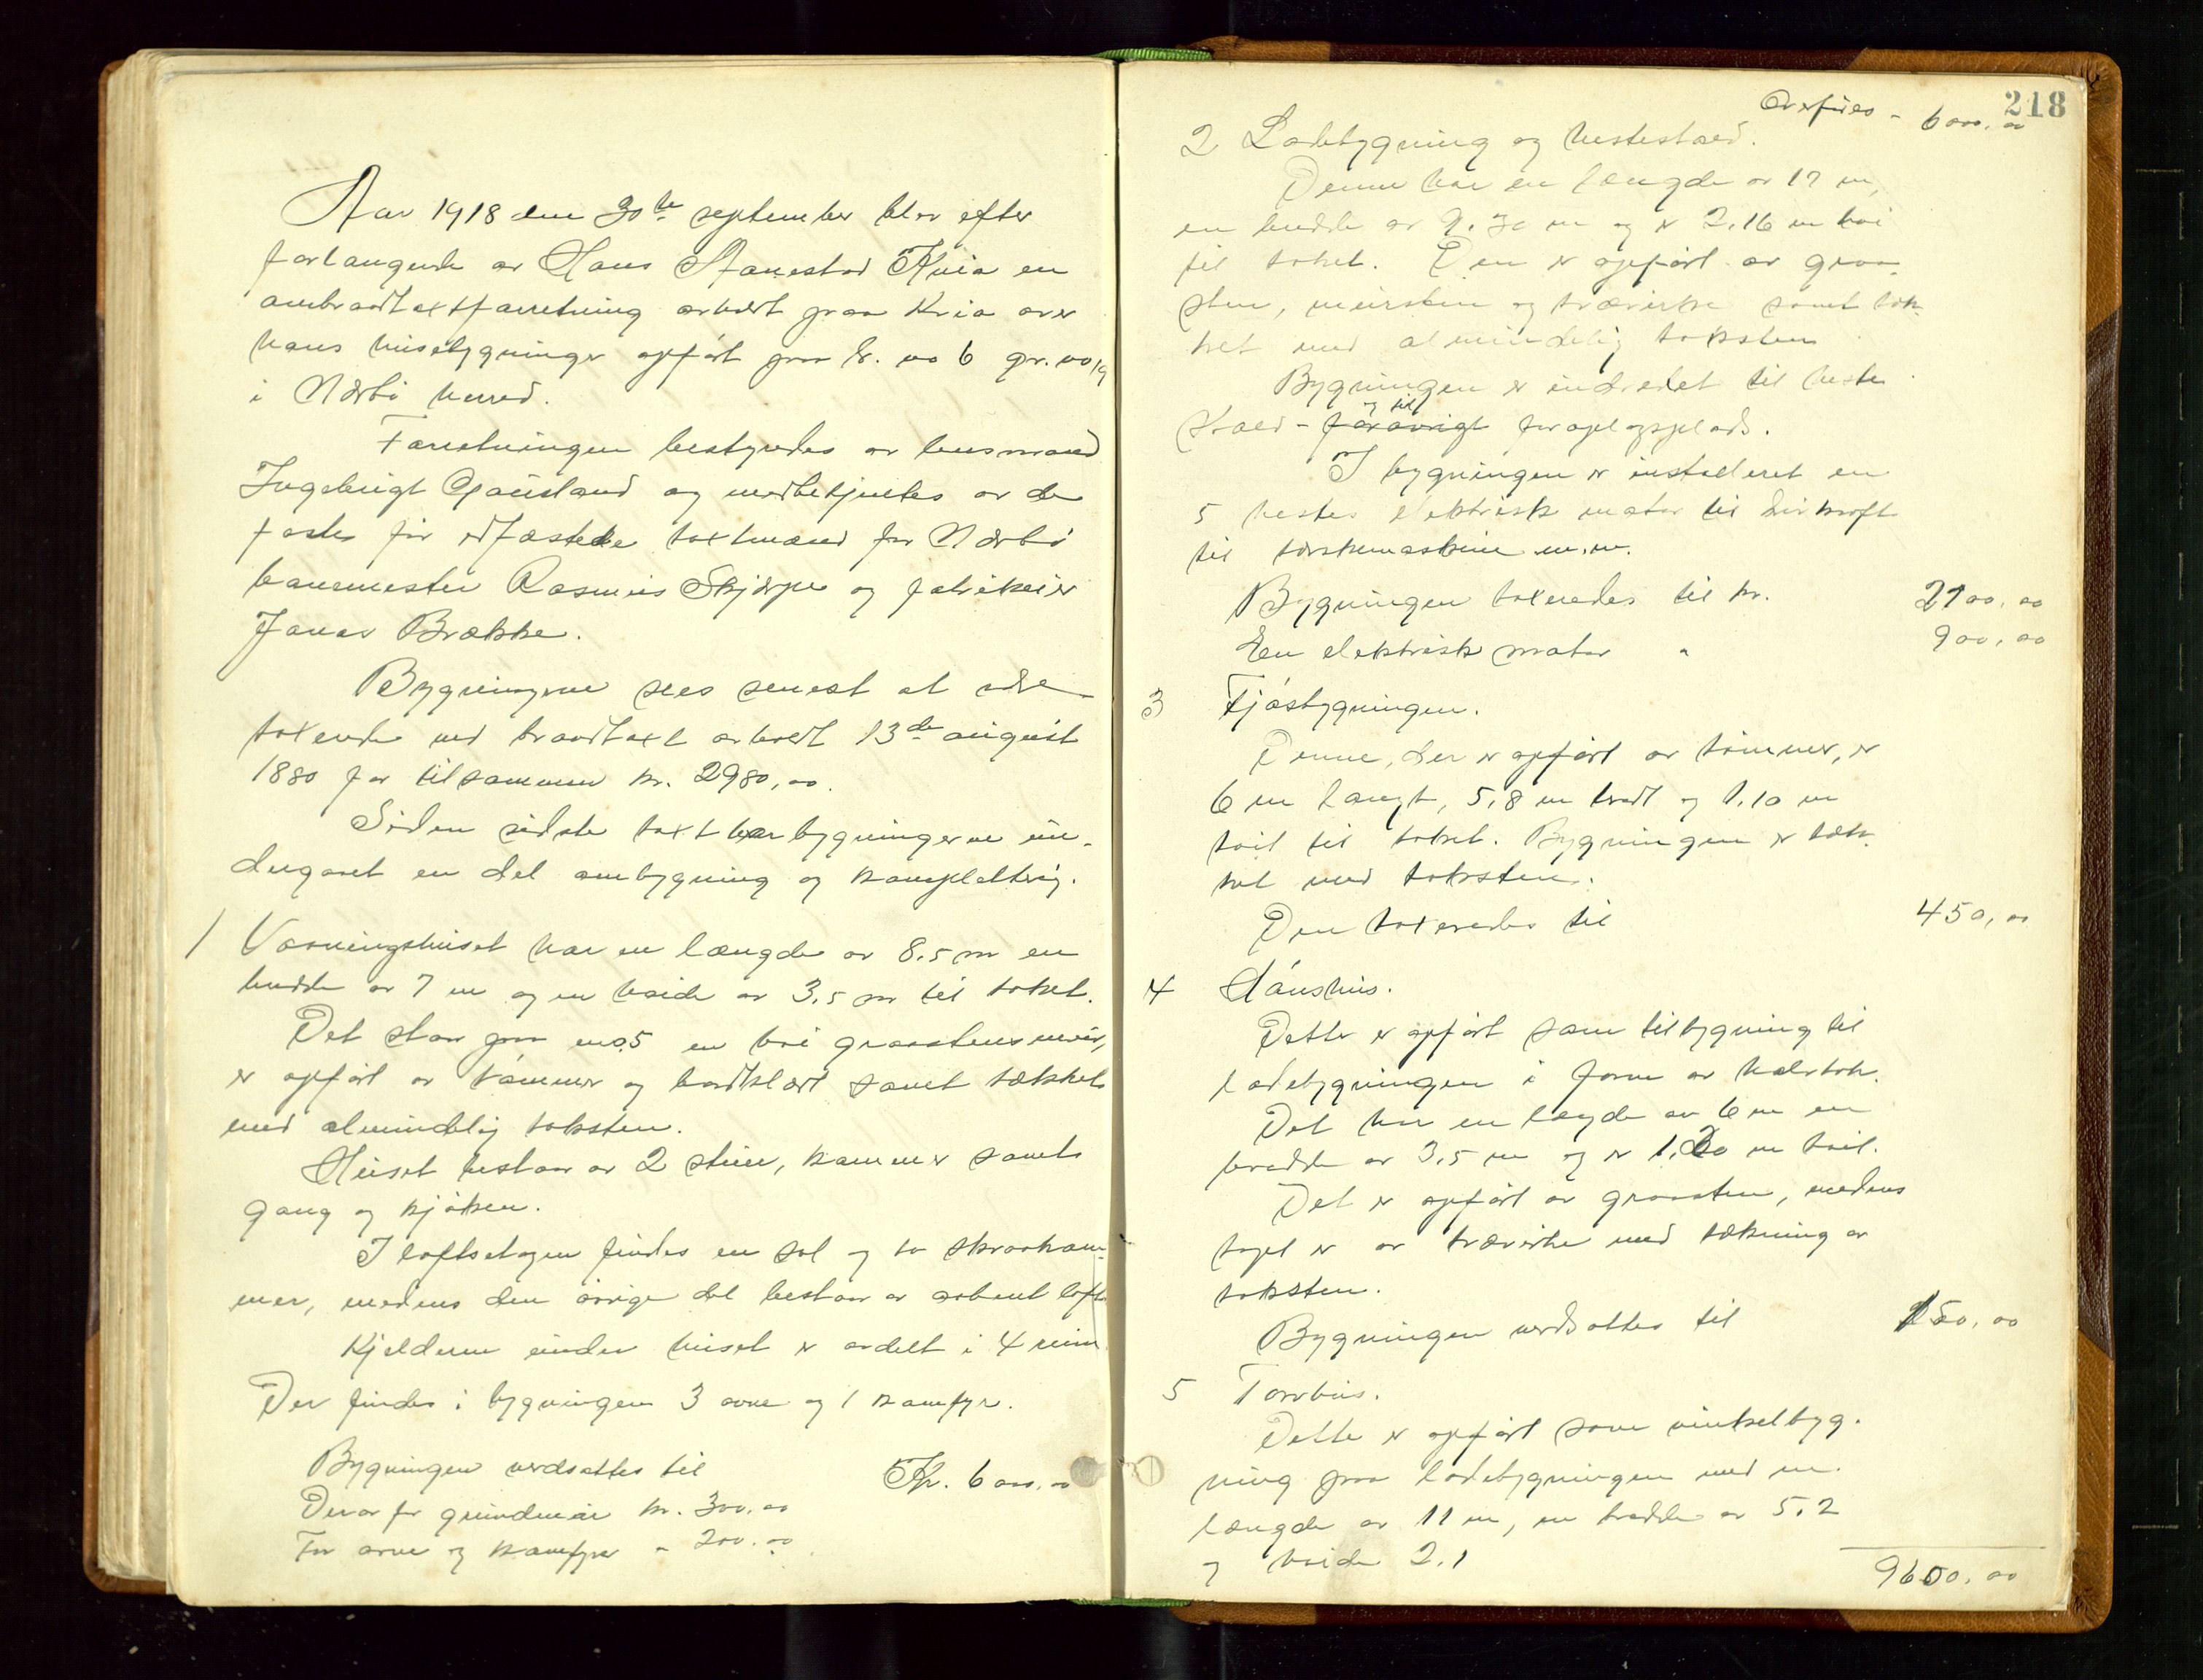 Aar 1918 den 30te september blev efter
forlangende av Hans Stanestad Kvia en
ombrandtaxtforretning avholdt paa Kvia over
hans husebygninger opført paa br. no 6 gr. no 19
i Nærbø herred.
Forretningen bestyredes av lensmand
Ingebrigt Gausland og medbetjentes av de
faste før edfæstede taxtmænd for Nærbø
baneemester Rasmus Skjærpe og fabrikeier
Jonas Brække.
Bygningerne sees senest at være
taxerede ved brandtaxt avholdt 13de august
1880 for tilsammen kr. 2980,00.
Siden sidste taxt har bygningerne un-
dergaaet en del ombygning og komplettering.
1 Vaaningshuset har en længde av 8,5 m en
bredde av 7 m og en høide av 3,5 m til taket.
Det staar paa en 0,5 m høi graastensmur,
er opført av tømmer og bordklædt samt tækket
med almindelig taksten.
Huset bestaar av 2 stuer, kammer samt
gang og kjøken.
I loftsetagen findes en sal og to skraakam-
mer, medens den øvrige del bestaar av aapent loft
Kjelderen under huset er avdelt i 4 rum
Der findes i bygningen 3 ovne og 1 komfyr.
Bygningen verdsattes til Kr. 6000,00
Derav for grundmur kr. 300,00
For ovne og komfyr " 200,00
218
Overføres - 6000,00
2 Ladebygning og hestestald.
Denne har en længde av 17 m,
en bredde av 7.30 m og er 2.16 m høi
til taket. Den er opført av graa-
sten, mursten og trævirke samt tæk-
ket med almindelig taksten
Bygningen er indredet til heste
stald - forøvrigt og til foroplagsplads.
I bygningen er installeret en
5 hestes elektrisk motor til drivkraft
til tærskemaskine m.m.
Bygningen taxeredes til kr. 2100,00
En elektrisk motor " 900,00
3 Fjøsbygningen.
Denne, der er opført av tømmer, er
6 m langt, 5,8 m bredt og 1.10 m
høit til taket. Bygningen er tæk-
ket med taksten.
Den taxeredes til 450,00
4 Hønshus.
Dette er opført som tilbygning til
ladebygningen i form av halvtak.
Det har en længde av 6 m en
bredde av 3,5 m og er 1,20 m høit.
Det er opført av graasten, medens
taget er av trævirke med tækning av
taksten.
Bygningen verdsattes til 150,00
5 Torvhus.
Dette er opført som vinkelbyg-
ning paa ladebygningen med en
længde av 11 m, en bredde av 5.2
og høide 2.1
9600,00